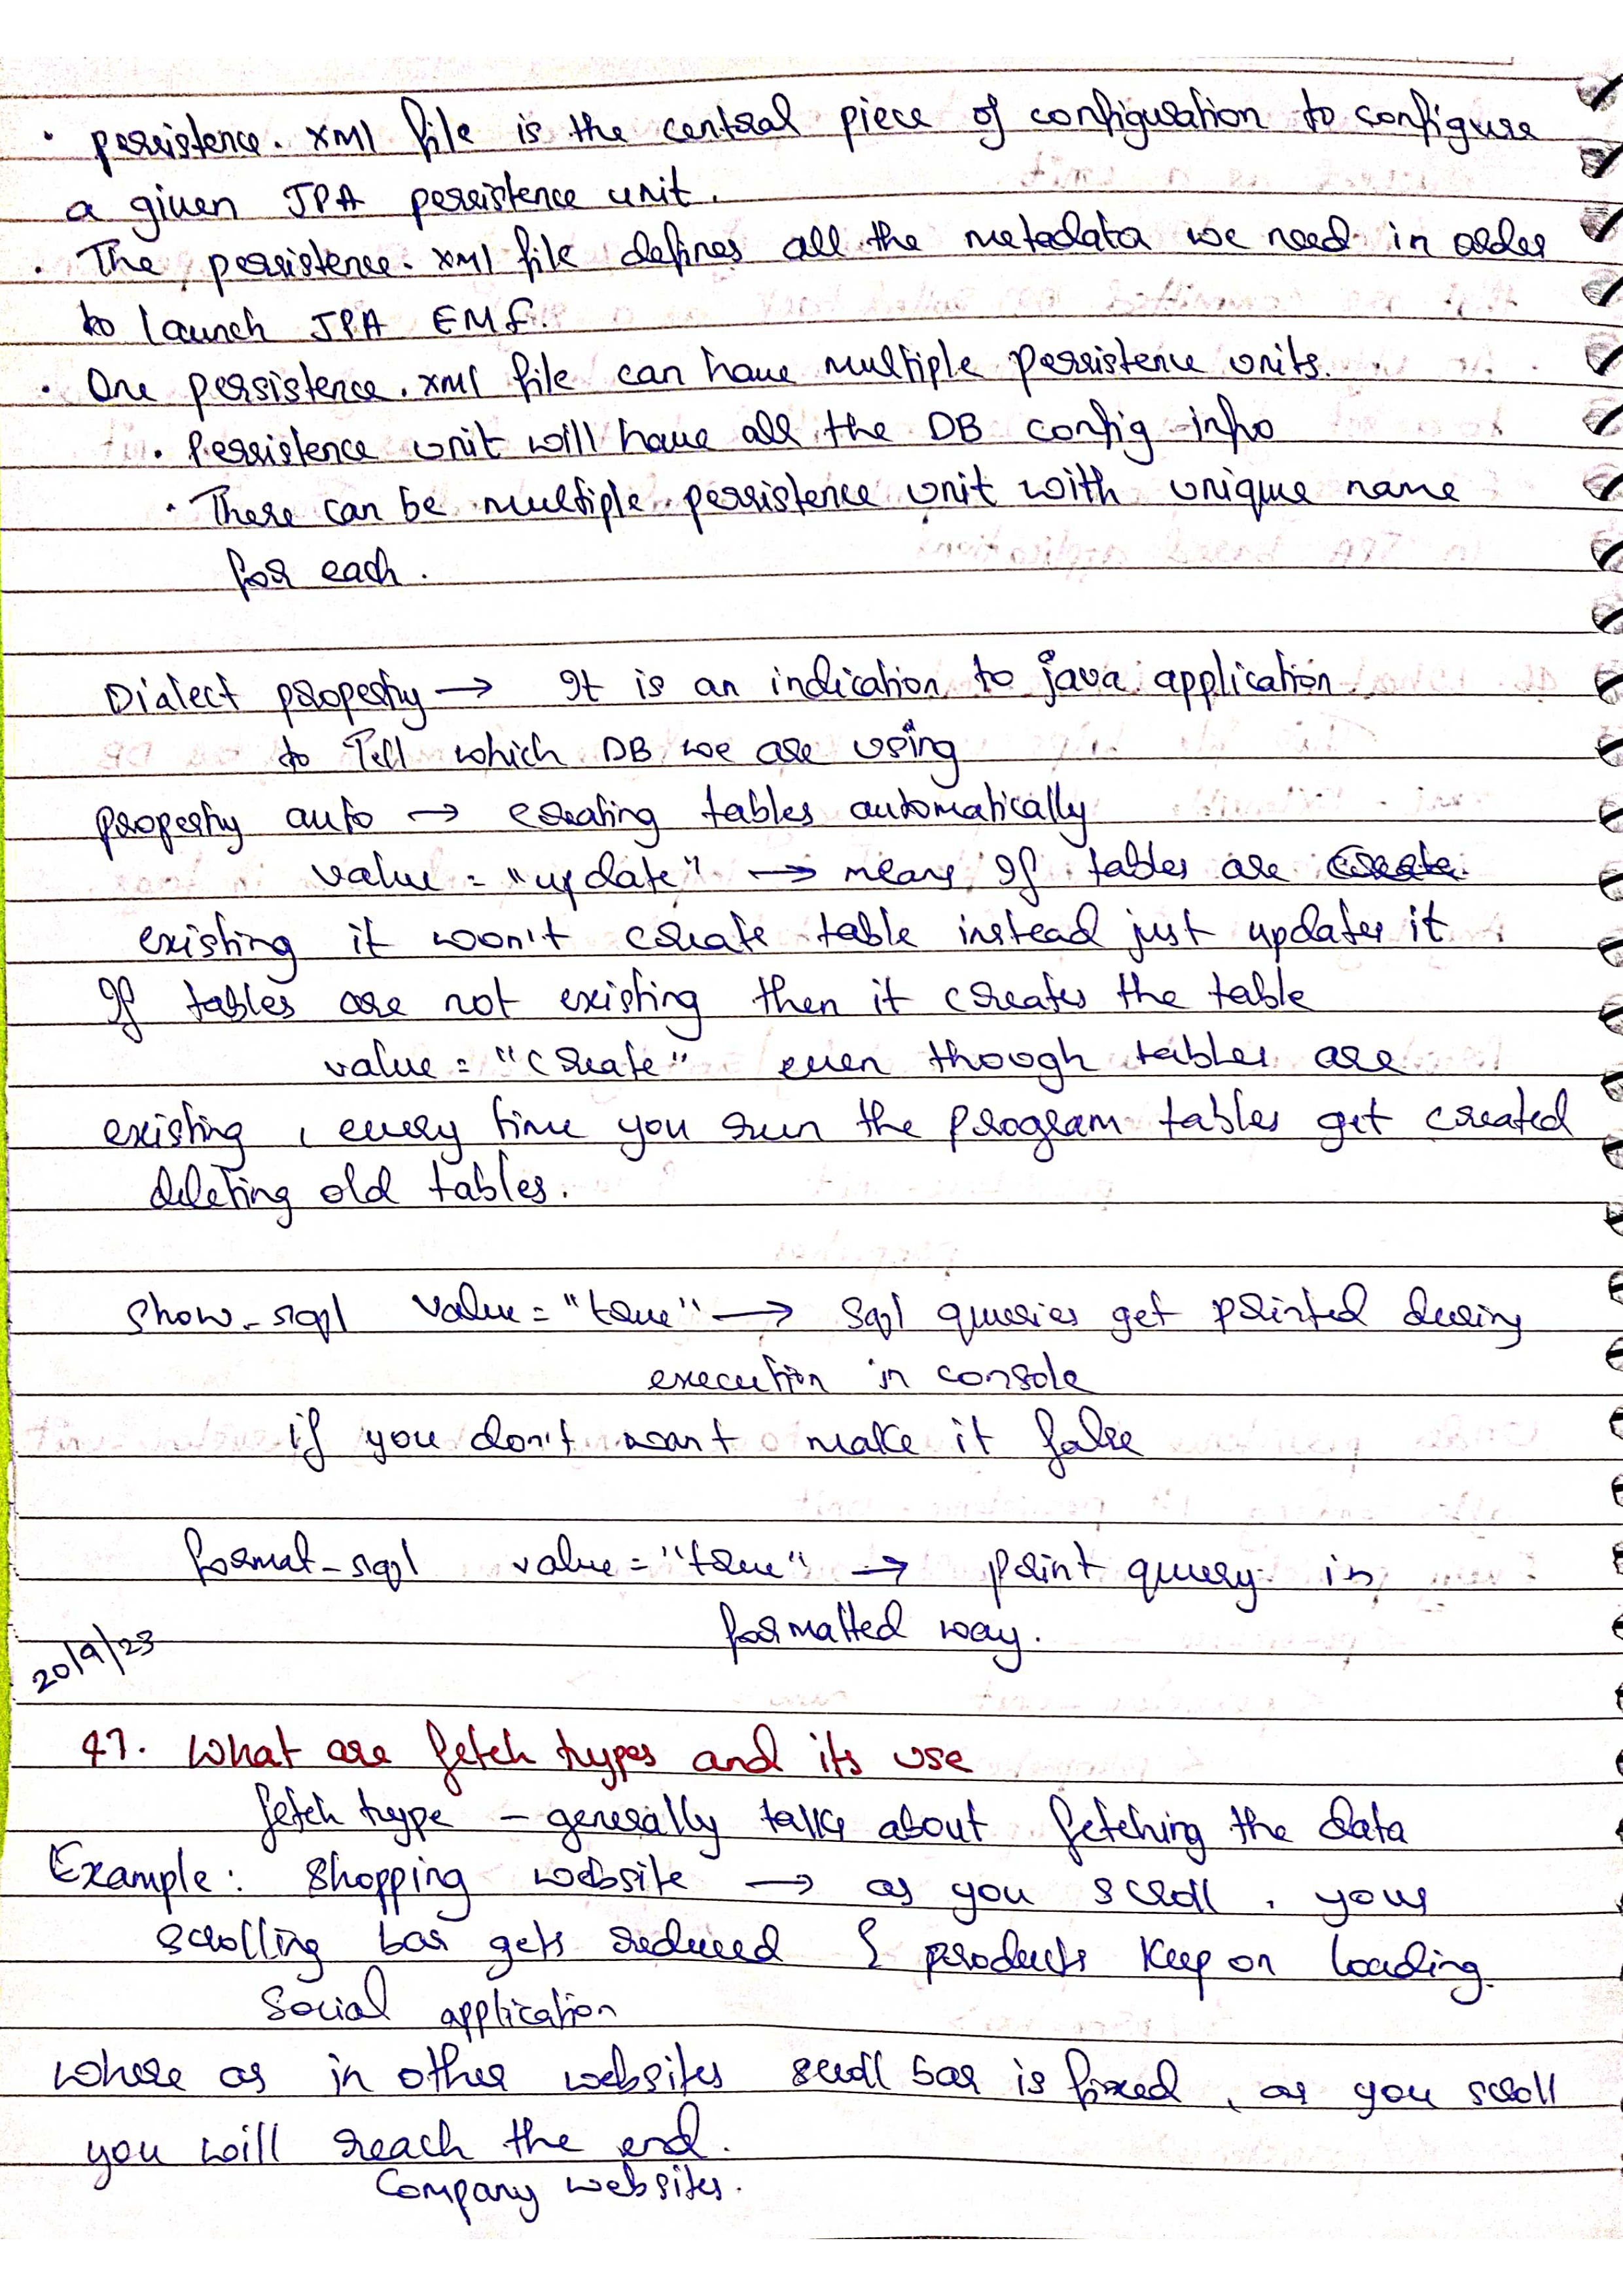 · persistence.xml file is the central piece of configuration to configure
a given JPA persistence unit.
· The persistence.xml file defines all the metadata we need in order
to launch JPA EMF.
· One persistence.xml file can have multiple persistence units.
· Persistence unit will have all the DB config info
· There can be multiple persistence unit with unique name
for each.
Dialect property → It is an indication to java application
to Tell which DB we are using
property auto → creating tables automatically
value = "update" → means If tables are
existing it woon't create table instead just updates it
If tables are not existing then it creates the table
value = "create" even though tables are
existing, every time you run the program tables get created
deleting old tables.
show_sql value = "true" → sql queries get printed during
execution in console
if you don't want make it false
format_sql value = "true" → print query in
formatted way.
20/9/23
47. What are fetch types and its use
fetch type – generally talks about fetching the data
Example: Shopping website → as you scroll, your
scrolling bar gets reduced & products keep on loading.
Social application
where as in other websites scroll bar is fixed, as you scroll
you will reach the end.
Company websites.